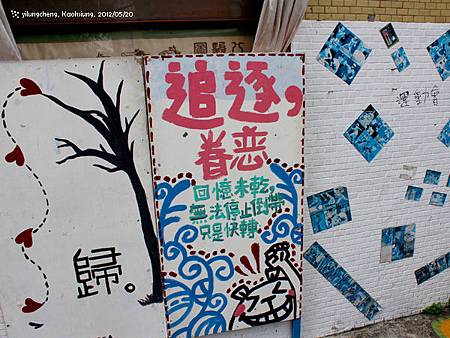 yilungcheng, Kaohsiung, 2012/05/20
追逐，
眷恋
回憶未乾，
無法停止倒帶
只是快轉
歸。
運動會
yilungcheng